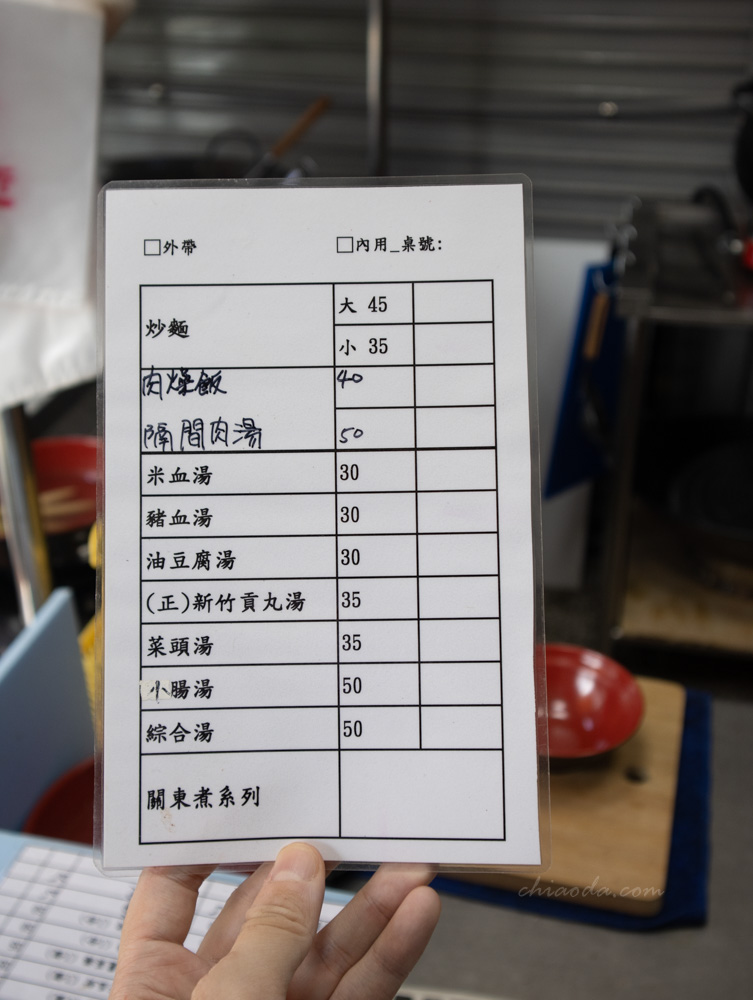 □外帶 □內用_桌號:
炒麵 大 45
小 35
肉燥飯 40
隔間肉湯 50
米血湯 30
豬血湯 30
油豆腐湯 30
(正)新竹貢丸湯 35
菜頭湯 35
小腸湯 50
綜合湯 50
關東煮系列
chiaoda.com